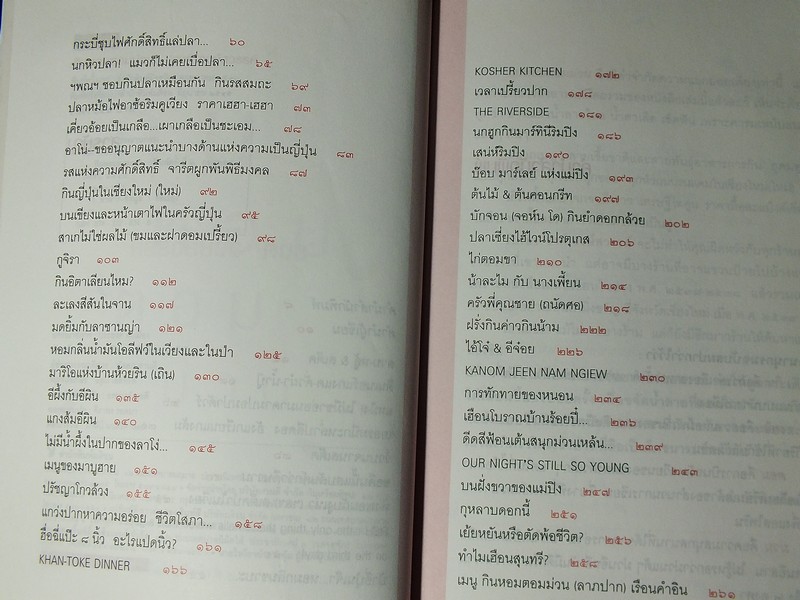 กระบี่ชุบไฟศักดิ์สิทธิ์แล่ปลา... ๖๐
นกหิวปลา! แมวก็ไม่เคยเบื่อปลา... ๖๕
ฯพณฯ ชอบกินปลาเหมือนกัน กินรสสมถะ ๖๙
ปลาหม้อไฟอาซ้อริมคูเวียง ราคาเฮฮา-เฮฮา ๗๓
เคี่ยวอ้อยเป็นเกลือ...เผาเกลือเป็นชะเอม... ๗๘
อาโน่--ขออนุญาตแนะนำบางด้านแห่งความเป็นญี่ปุ่น ๘๓
รสแห่งความศักดิ์สิทธิ์ จารีตผูกพันพิธีมงคล ๘๗
กินญี่ปุ่นในเชียงใหม่ (ใหม่) ๙๒
บนเขียงและหน้าเตาไฟในครัวญี่ปุ่น ๙๕
สาเกไม่ใช่ผลไม้ (ขมและฝาดอมเปรี้ยว) ๙๘
กูจิรา ๑๐๓
กินอิตาเลียนไหม? ๑๑๒
ละเลงสีสันในจาน ๑๑๗
มดยิ้มกับลาซานญ่า ๑๒๑
หอมกลิ่นน้ำมันโอลีฟว์ในเวียงและในป่า ๑๒๕
มาริโอแห่งบ้านห้วยริน (เถิน) ๑๓๐
อีผึ้งกับอีผิน ๑๓๕
แกงส้มอีผิน ๑๔๐
ไม่มีน้ำผึ้งในปากของลาโง่... ๑๔๕
เมนูของมาบูฮาย ๑๕๑
ปรัชญาโกวล้วง ๑๕๕
แกว่งปากหาความอร่อย ชีวิตโสภา... ๑๕๘
ฮื่อฉี่แป๊ะ ๘ นิ้ว อะไรแปดนิ้ว? ๑๖๑
KHAN-TOKE DINNER ๑๖๖
KOSHER KITCHEN ๑๗๒
เวลาเปรี้ยวปาก ๑๗๘
THE RIVERSIDE ๑๘๑
นกฮูกกินมาร์ทินีริมปิง ๑๘๖
เสน่ห์ริมปิง ๑๙๐
บ๊อบ มาร์เลย์ แห่งแม่ปิง ๑๙๓
ต้นไม้ & ต้นคอนกรีท ๑๙๗
บักจอน (จอห์น โด) กินยำดอกกล้วย ๒๐๒
ปลาเซี่ยงไฮ้ไวน์โปรตุเกส ๒๐๖
ไก่ตอมขา ๒๑๐
น้าละไม กับ นางเพี้ยน ๒๑๔
ครัวพี่คุณชาย (ถนัดศอ) ๒๑๘
ฝรั่งกินค่าวกินน้าม ๒๒๒
ไอ้โจ้ & อีจ๋อย ๒๒๖
KANOM JEEN NAM NGIEW ๒๓๐
การทักทายของหนอน ๒๓๔
เฮือนโบราณบ้านร้อยปี๋... ๒๓๖
ดีดสีฟ้อนเต้นสนุกม่วนเหล้น... ๒๓๙
OUR NIGHT'S STILL SO YOUNG ๒๔๓
บนฝั่งขวาของแม่ปิง ๒๔๗
กุหลาบดอกนี้ ๒๕๑
เย้ยหยันหรือตัดพ้อชีวิต? ๒๕๖
ทำไมเฮือนสุนทรี? ๒๕๘
เมนู กินหอมตอมม่วน (ลาภปาก) เรือนคำอิน ๒๖๑